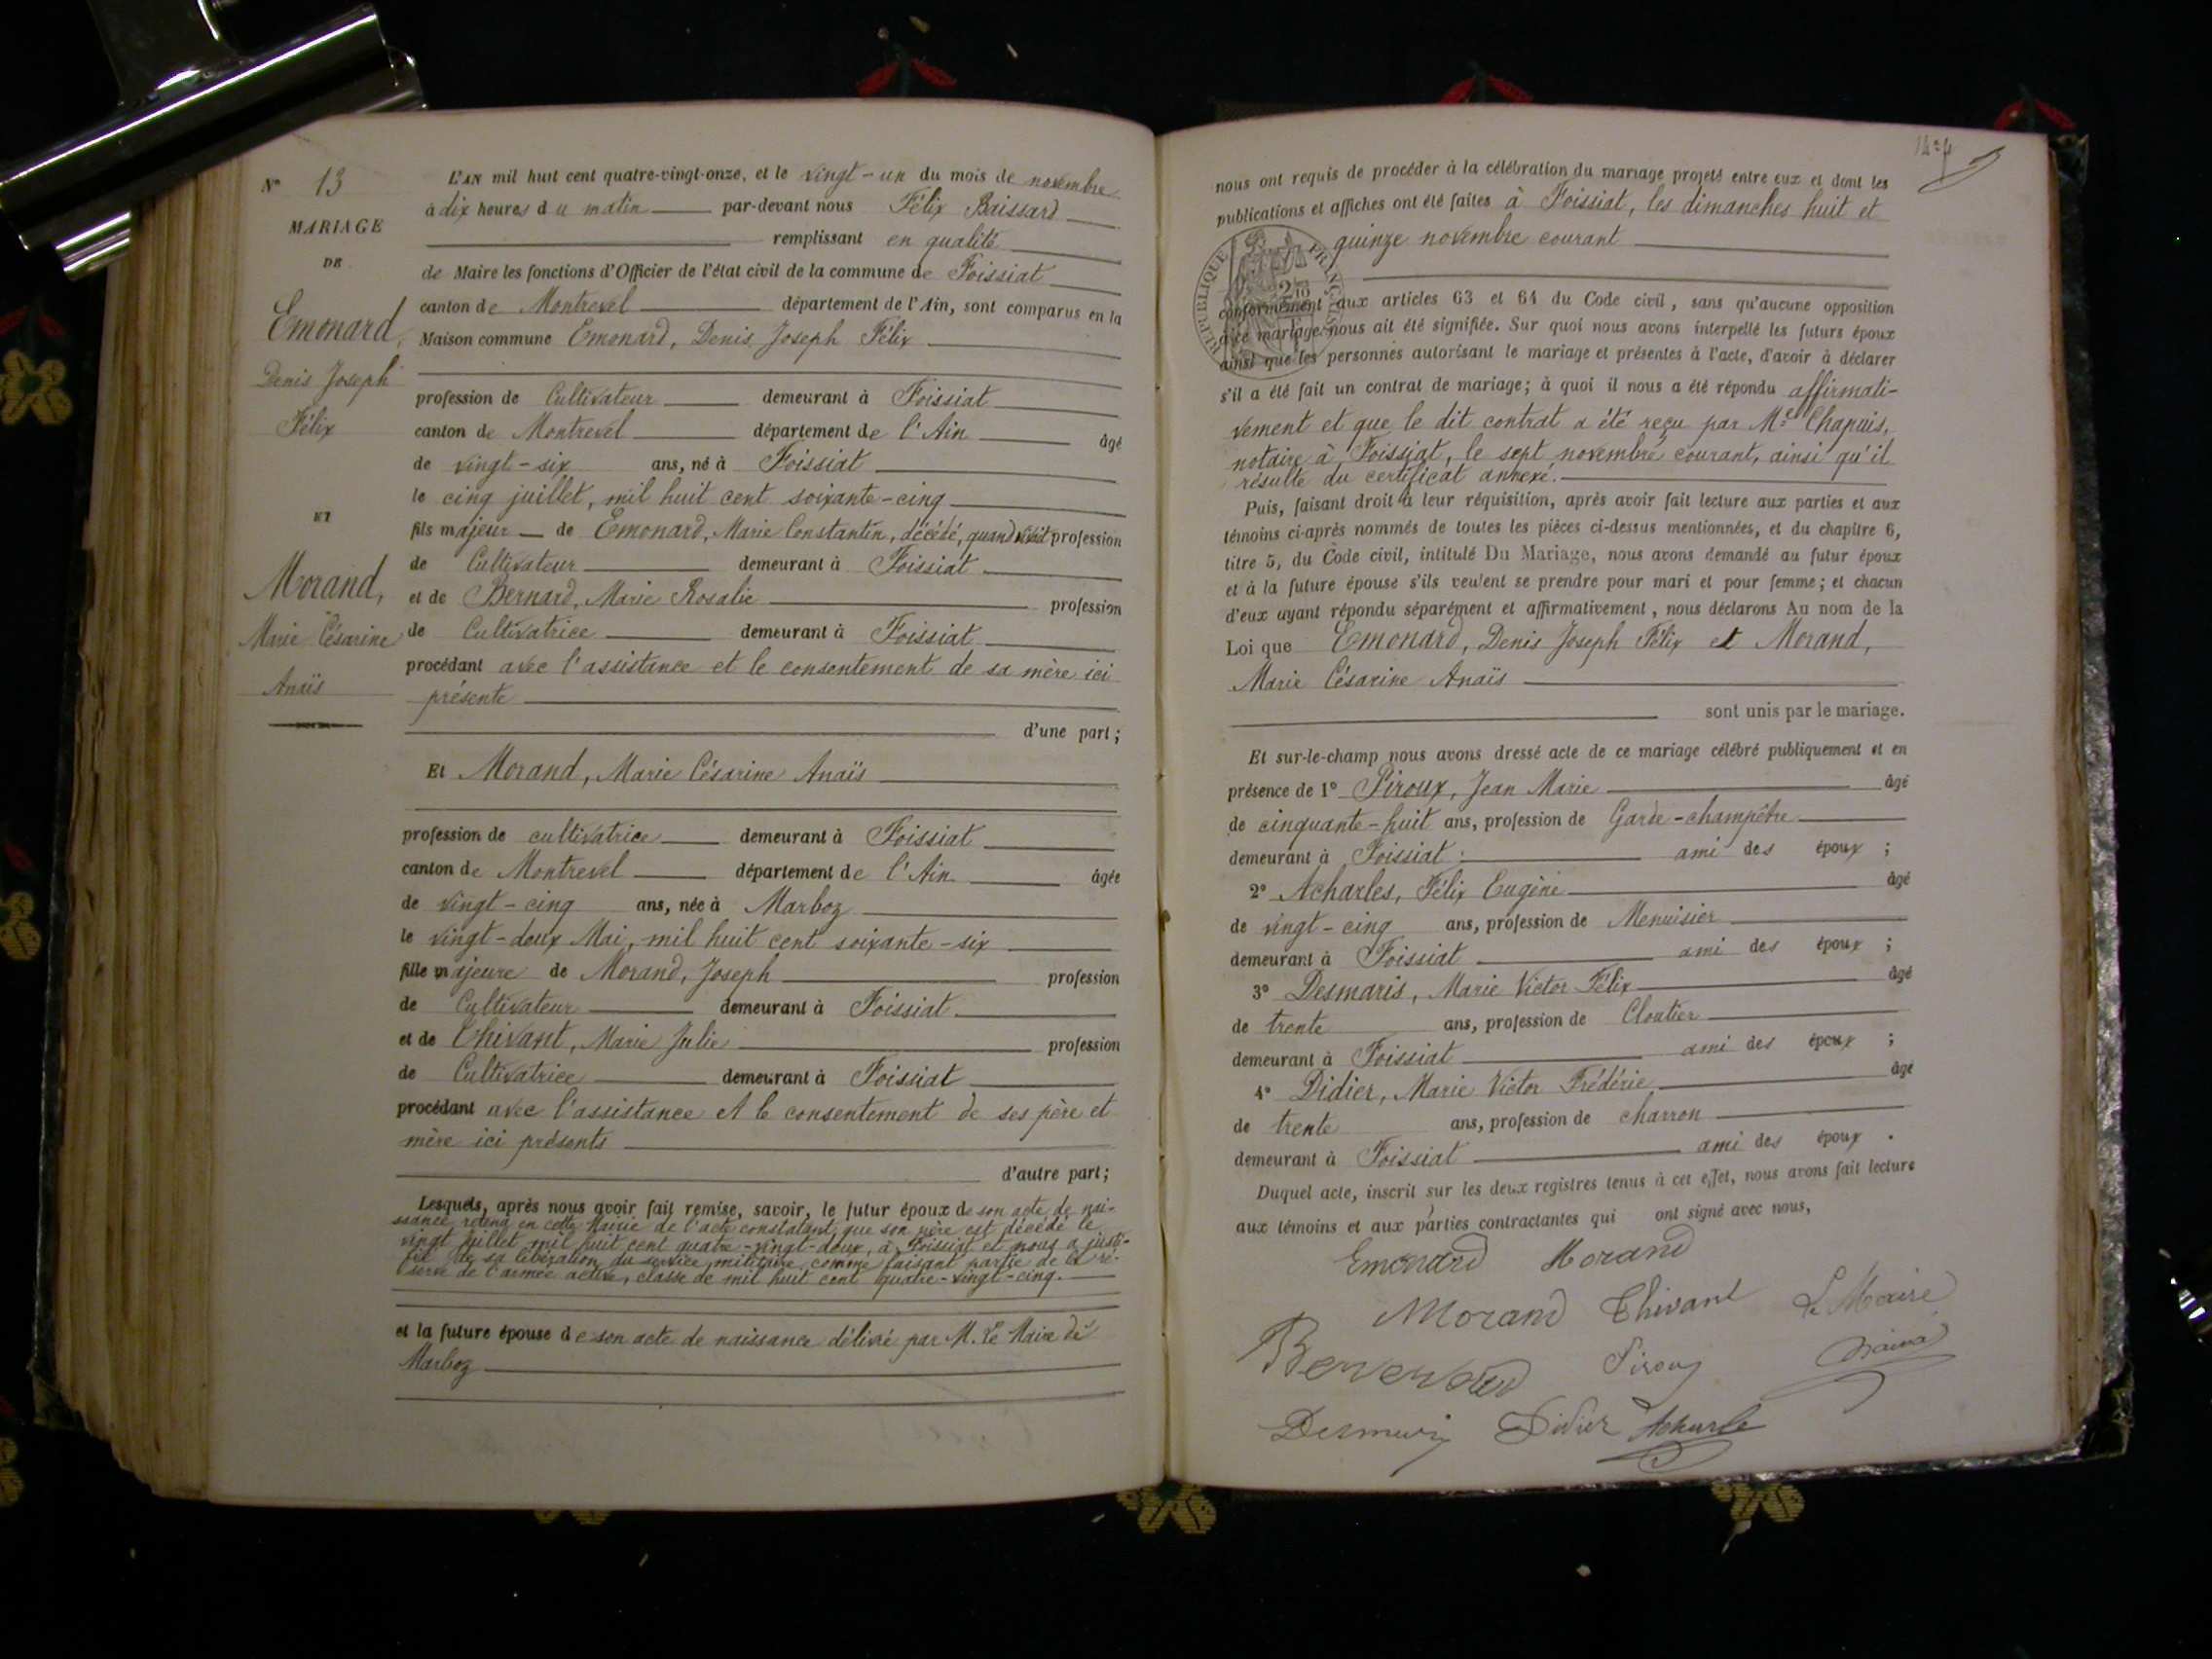 N° 13
MARIAGE
DE
Emonard,
Denis Joseph
Félix
ET
Morand,
Marie Césarine
Anaïs
L'AN mil huit cent quatre-vingt-onze, et le vingt-un du mois de novembre
à dix heures du matin par-devant nous Félix Baissard
remplissant en qualité
de Maire les fonctions d'Officier de l'état civil de la commune de Foissiat
canton de Montrevel département de l'Ain, sont comparus en la
Maison commune Emonard, Denis Joseph Félix
profession de Cultivateur demeurant à Foissiat
canton de Montrevel département de l'Ain âgé
de vingt-six ans, né à Foissiat
le cinq juillet, mil huit cent soixante-cinq
fils majeur de Emonard, Marie Constantin, décédé, quand vivait profession
de Cultivateur demeurant à Foissiat
et de Bernard, Marie Rosalie profession
de Cultivatrice demeurant à Foissiat
procédant avec l'assistance et le consentement de sa mère ici
présente
d'une part;
Et Morand, Marie Césarine Anaïs
profession de cultivatrice demeurant à Foissiat
canton de Montrevel département de l'Ain âgée
de vingt-cinq ans, née à Marboz
le vingt-deux Mai, mil huit cent soixante-six
fille majeure de Morand, Joseph profession
de Cultivateur demeurant à Foissiat
et de Chivant, Marie Julie profession
de Cultivatrice demeurant à Foissiat
procédant avec l'assistance et le consentement de ses père et
mère ici présents
d'autre part;
Lesquels, après nous avoir fait remise, savoir, le futur époux de son acte de nais-
sance retenu en cette Mairie de l'acte constatant que son père est décédé le
vingt juillet mil huit cent quatre-vingt-deux, à Foissiat et nous a justi-
fié de sa libération du service militaire comme faisant partie de la ré-
serve de l'armée active, classe de mil huit cent quatre-vingt-cinq.
et la future épouse de son acte de naissance délivré par M. Le Maire de
Marboz
nous ont requis de procéder à la célébration du mariage projeté entre eux et dont les
publications et affiches ont été faites à Foissiat, les dimanches huit et
quinze novembre courant
REPUBLIQUE FRANÇAISE
conformément aux articles 63 et 64 du Code civil, sans qu'aucune opposition
à ce mariage nous ait été signifiée. Sur quoi nous avons interpellé les futurs époux
ainsi que les personnes autorisant le mariage et présentes à l'acte, d'avoir à déclarer
s'il a été fait un contrat de mariage; à quoi il nous a été répondu affirmati-
vement et que le dit contrat a été reçu par Me Chapuis,
notaire à Foissiat, le sept novembre courant, ainsi qu'il
résulte du certificat annexé.
Puis, faisant droit à leur réquisition, après avoir fait lecture aux parties et aux
témoins ci-après nommés de toutes les pièces ci-dessus mentionnées, et du chapitre 6,
titre 5, du Code civil, intitulé Du Mariage, nous avons demandé au futur époux
et à la future épouse s'ils veulent se prendre pour mari et pour femme; et chacun
d'eux ayant répondu séparément et affirmativement, nous déclarons Au nom de la
Loi que Emonard, Denis Joseph Félix et Morand,
Marie Césarine Anaïs
sont unis par le mariage.
Et sur-le-champ nous avons dressé acte de ce mariage célébré publiquement et en
présence de 1° Piroux, Jean Marie âgé
de cinquante-huit ans, profession de Garde-champêtre
demeurant à Foissiat ami des époux ;
2° Acharles, Félix Eugène âgé
de vingt-cinq ans, profession de Menuisier
demeurant à Foissiat ami des époux ;
3° Desmaris, Marie Victor Félix âgé
de trente ans, profession de Cloutier
demeurant à Foissiat ami des époux ;
4° Didier, Marie Victor Frédéric âgé
de trente ans, profession de charron
demeurant à Foissiat ami des époux .
Duquel acte, inscrit sur les deux registres tenus à cet effet, nous avons fait lecture
aux témoins et aux parties contractantes qui ont signé avec nous,
Emonard Morand
Morand Chivant Le Maire
Piroux
Desmaris Didier Acharle